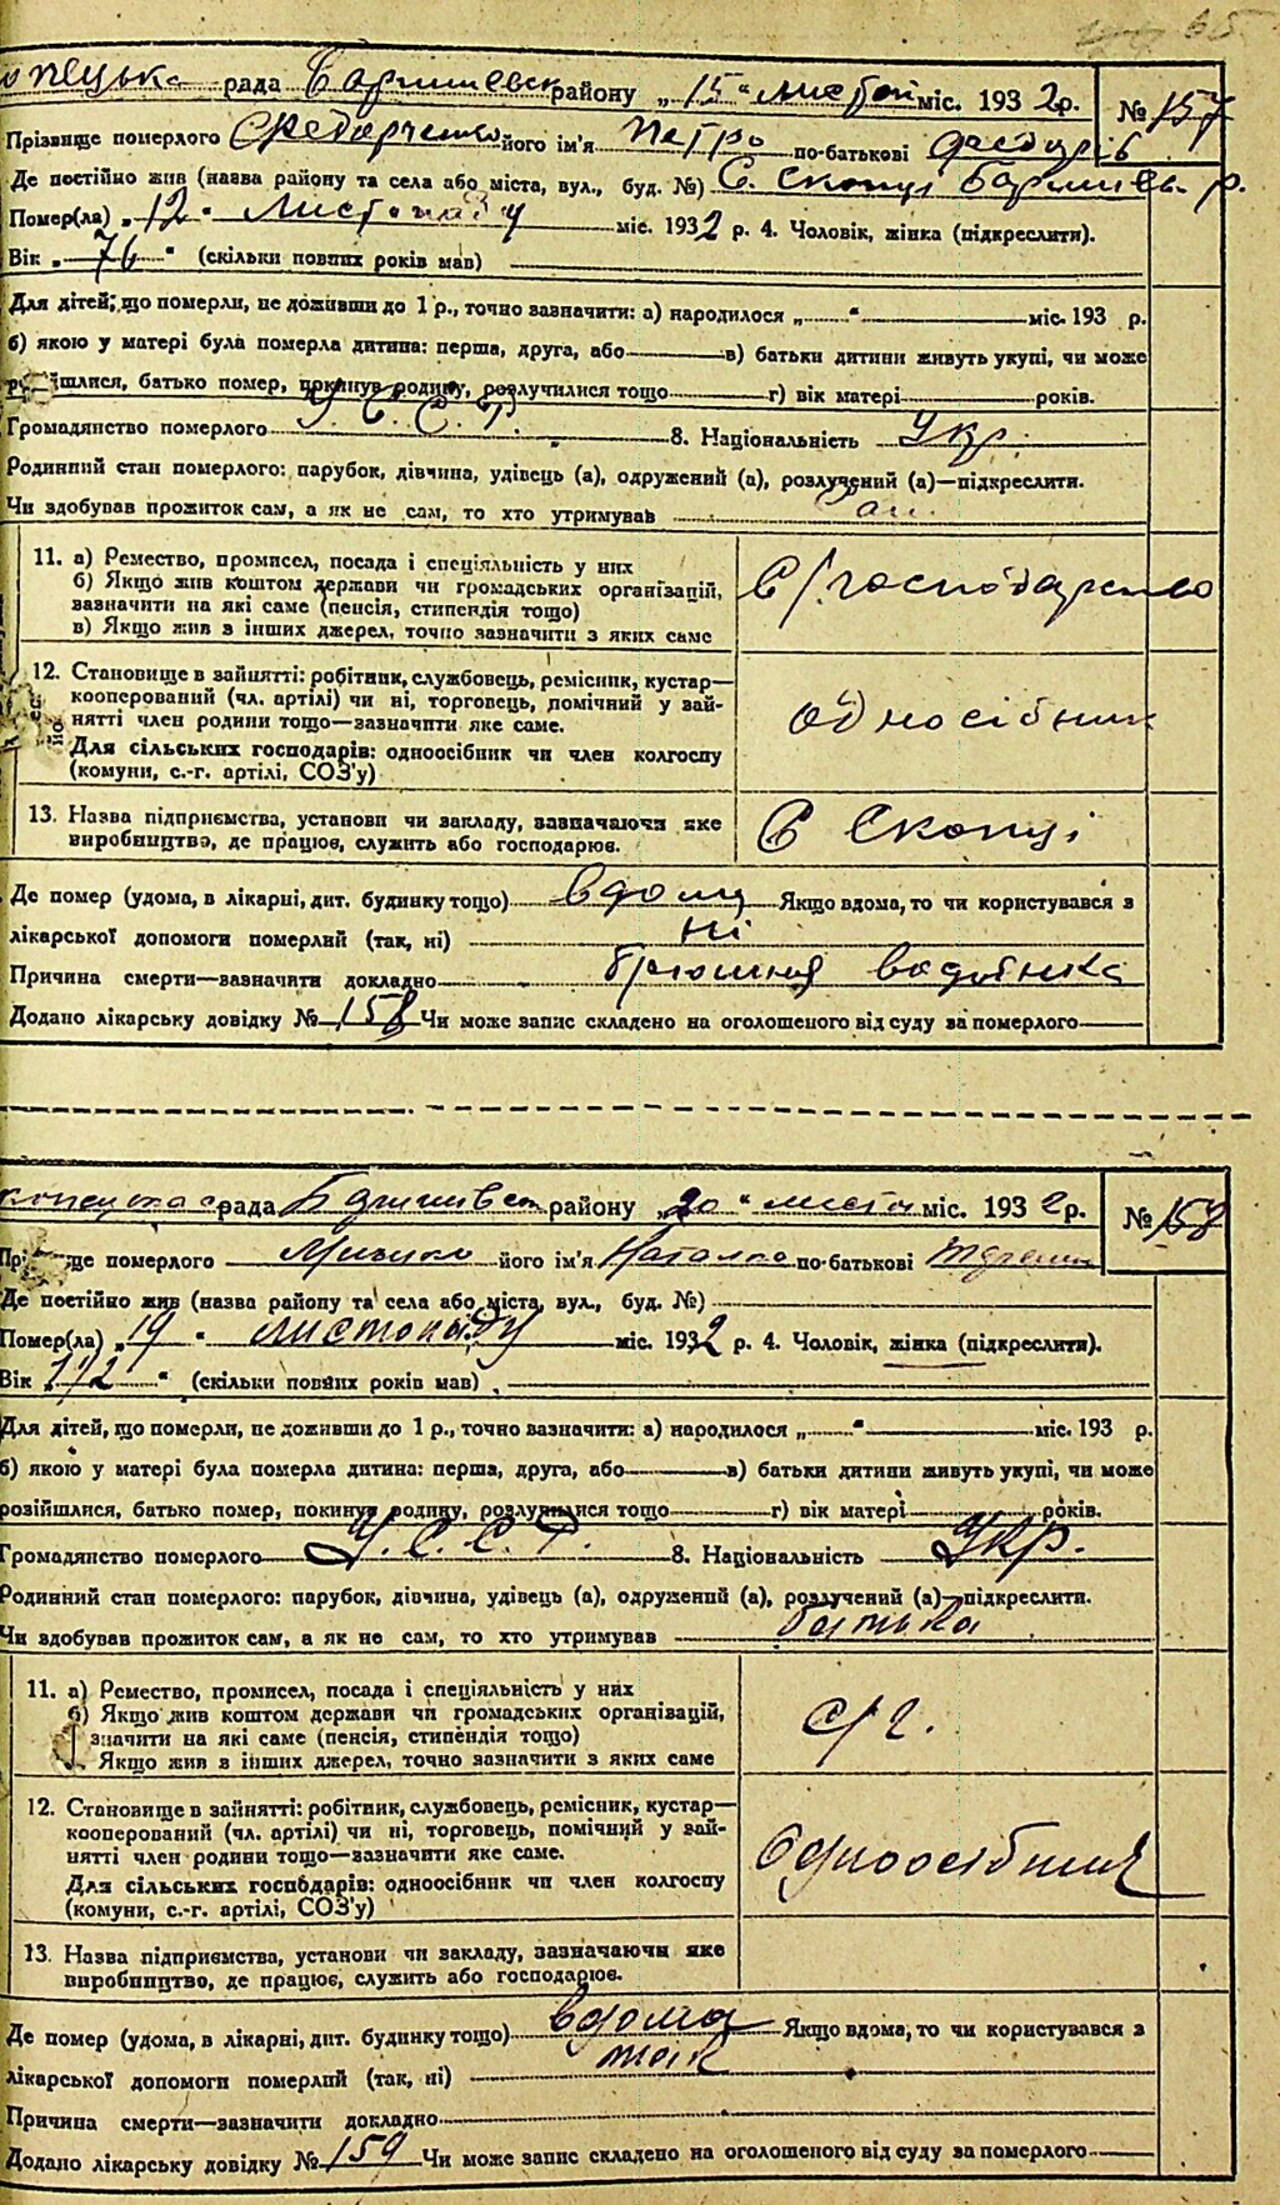 65
пецька рада Баришевськ району „15“ листопад міс. 1932 р. № 157
Прізвище померлого його ім'я Петро по-батькові Федорів
Де постійно жив (назва району та села або міста, вул., буд. №) С. Скопці Баришев. р.
Помер(ла) „12“ Листопаду міс. 1932 р. 4. Чоловік, жінка (підкреслити).
Вік „76“ (скільки повних років мав)
Для дітей, що померли, не доживши до 1 р., точно зазначити: а) народилося „ “ міс. 193 р.
б) якою у матері була померла дитина: перша, друга, або в) батьки дитини живуть укупі, чи може
розійшлися, батько помер, покинув родину, розлучилися тощо г) вік матері років.
Громадянство померлого У. С. С. Р. 8. Національність Укр.
Родинний стан померлого: парубок, дівчина, удівець (а), одружений (а), розлучений (а)—підкреслити.
Чи здобував прожиток сам, а як не сам, то хто утримував Сам.
11. а) Ремество, промисел, посада і спеціяльність у них
б) Якщо жив коштом держави чи громадських організацій,
зазначити на які саме (пенсія, стипендія тощо)
в) Якщо жив з інших джерел, точно зазначити з яких саме
С/господарство
12. Становище в зайнятті: робітник, службовець, ремісник, кустар—
кооперований (чл. артілі) чи ні, торговець, помічний у зай-
нятті член родини тощо—зазначити яке саме.
Для сільських господарів: одноосібник чи член колгоспу
(комуни, с.-г. артілі, СОЗ'у)
односібник
13. Назва підприємства, установи чи закладу, зазначаючи яке
виробництво, де працює, служить або господарює.
С Скопці
Де помер (удома, в лікарні, дит. будинку тощо) вдому Якщо вдома, то чи користувався з
лікарської допомоги померлий (так, ні) ні
Причина смерти—зазначити докладно брюшная водянка
Додано лікарську довідку № 158 Чи може запис складено на оголошеного від суду за померлого
копецька рада Баришевськ району „20“ листоп міс. 1932 р. № 158
Прізвище померлого його ім'я Наталка по-батькові
Де постійно жив (назва району та села або міста, вул., буд. №)
Помер(ла) „19“ листопаду міс. 1932 р. 4. Чоловік, жінка (підкреслити).
Вік „1/2“ (скільки повних років мав)
Для дітей, що померли, не доживши до 1 р., точно зазначити: а) народилося „ “ міс. 193 р.
б) якою у матері була померла дитина: перша, друга, або в) батьки дитини живуть укупі, чи може
розійшлися, батько помер, покинув родину, розлучилися тощо г) вік матері років.
Громадянство померлого У. С. С. Р. 8. Національність Укр.
Родинний стан померлого: парубок, дівчина, удівець (а), одружений (а), розлучений (а)—підкреслити.
Чи здобував прожиток сам, а як не сам, то хто утримував батька
11. а) Ремество, промисел, посада і спеціяльність у них
б) Якщо жив коштом держави чи громадських організацій,
значити на які саме (пенсія, стипендія тощо)
Якщо жив з інших джерел, точно зазначити з яких саме
с/г.
12. Становище в зайнятті: робітник, службовець, ремісник, кустар—
кооперований (чл. артілі) чи ні, торговець, помічний у зай-
нятті член родини тощо—зазначити яке саме.
Для сільських господарів: одноосібник чи член колгоспу
(комуни, с.-г. артілі, СОЗ'у)
Одноосібник
13. Назва підприємства, установи чи закладу, зазначаючи яке
виробництво, де працює, служить або господарює.
Де помер (удома, в лікарні, дит. будинку тощо) вдома Якщо вдома, то чи користувався з
лікарської допомоги померлий (так, ні) так
Причина смерти—зазначити докладно
Додано лікарську довідку № 159 Чи може запис складено на оголошеного від суду за померлого